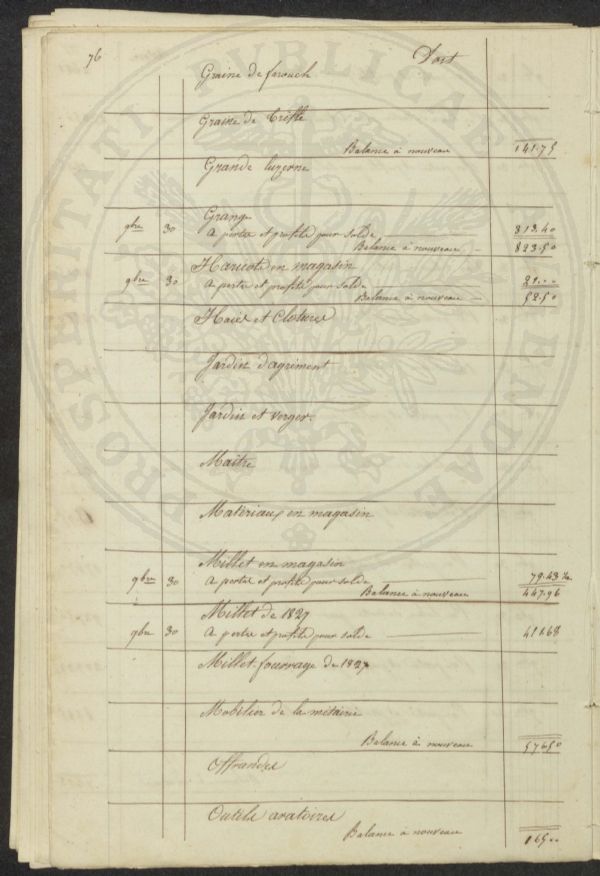 76
Doit
Graine de farouch
Graine de Trèfle
Balance à nouveau 141.75
Grande luzerne
Grange
9bre 30 A perte et profite pour solde 813.40
Balance à nouveau 823.50
Haricots en magasin
9bre 30 A perte et profite pour solde 21...
Balance à nouveau 52.50
Haies et Clotures
Jardin d'agrément
Jardin et verger
Maître
Matériaux en magasin
Millet en magasin
9bre 30 A perte et profite pour solde 79.43
Balance à nouveau 447.96
Millet de 1827
9bre 30 A perte et profite pour solde 411.68
Millet-fourrage de 1827
Mobilier de la métairie
Balance à nouveau 576.50
Offrandes
Outils aratoires
Balance à nouveau 165..
PROSPERITATI PUBLICAE AUGENDAE